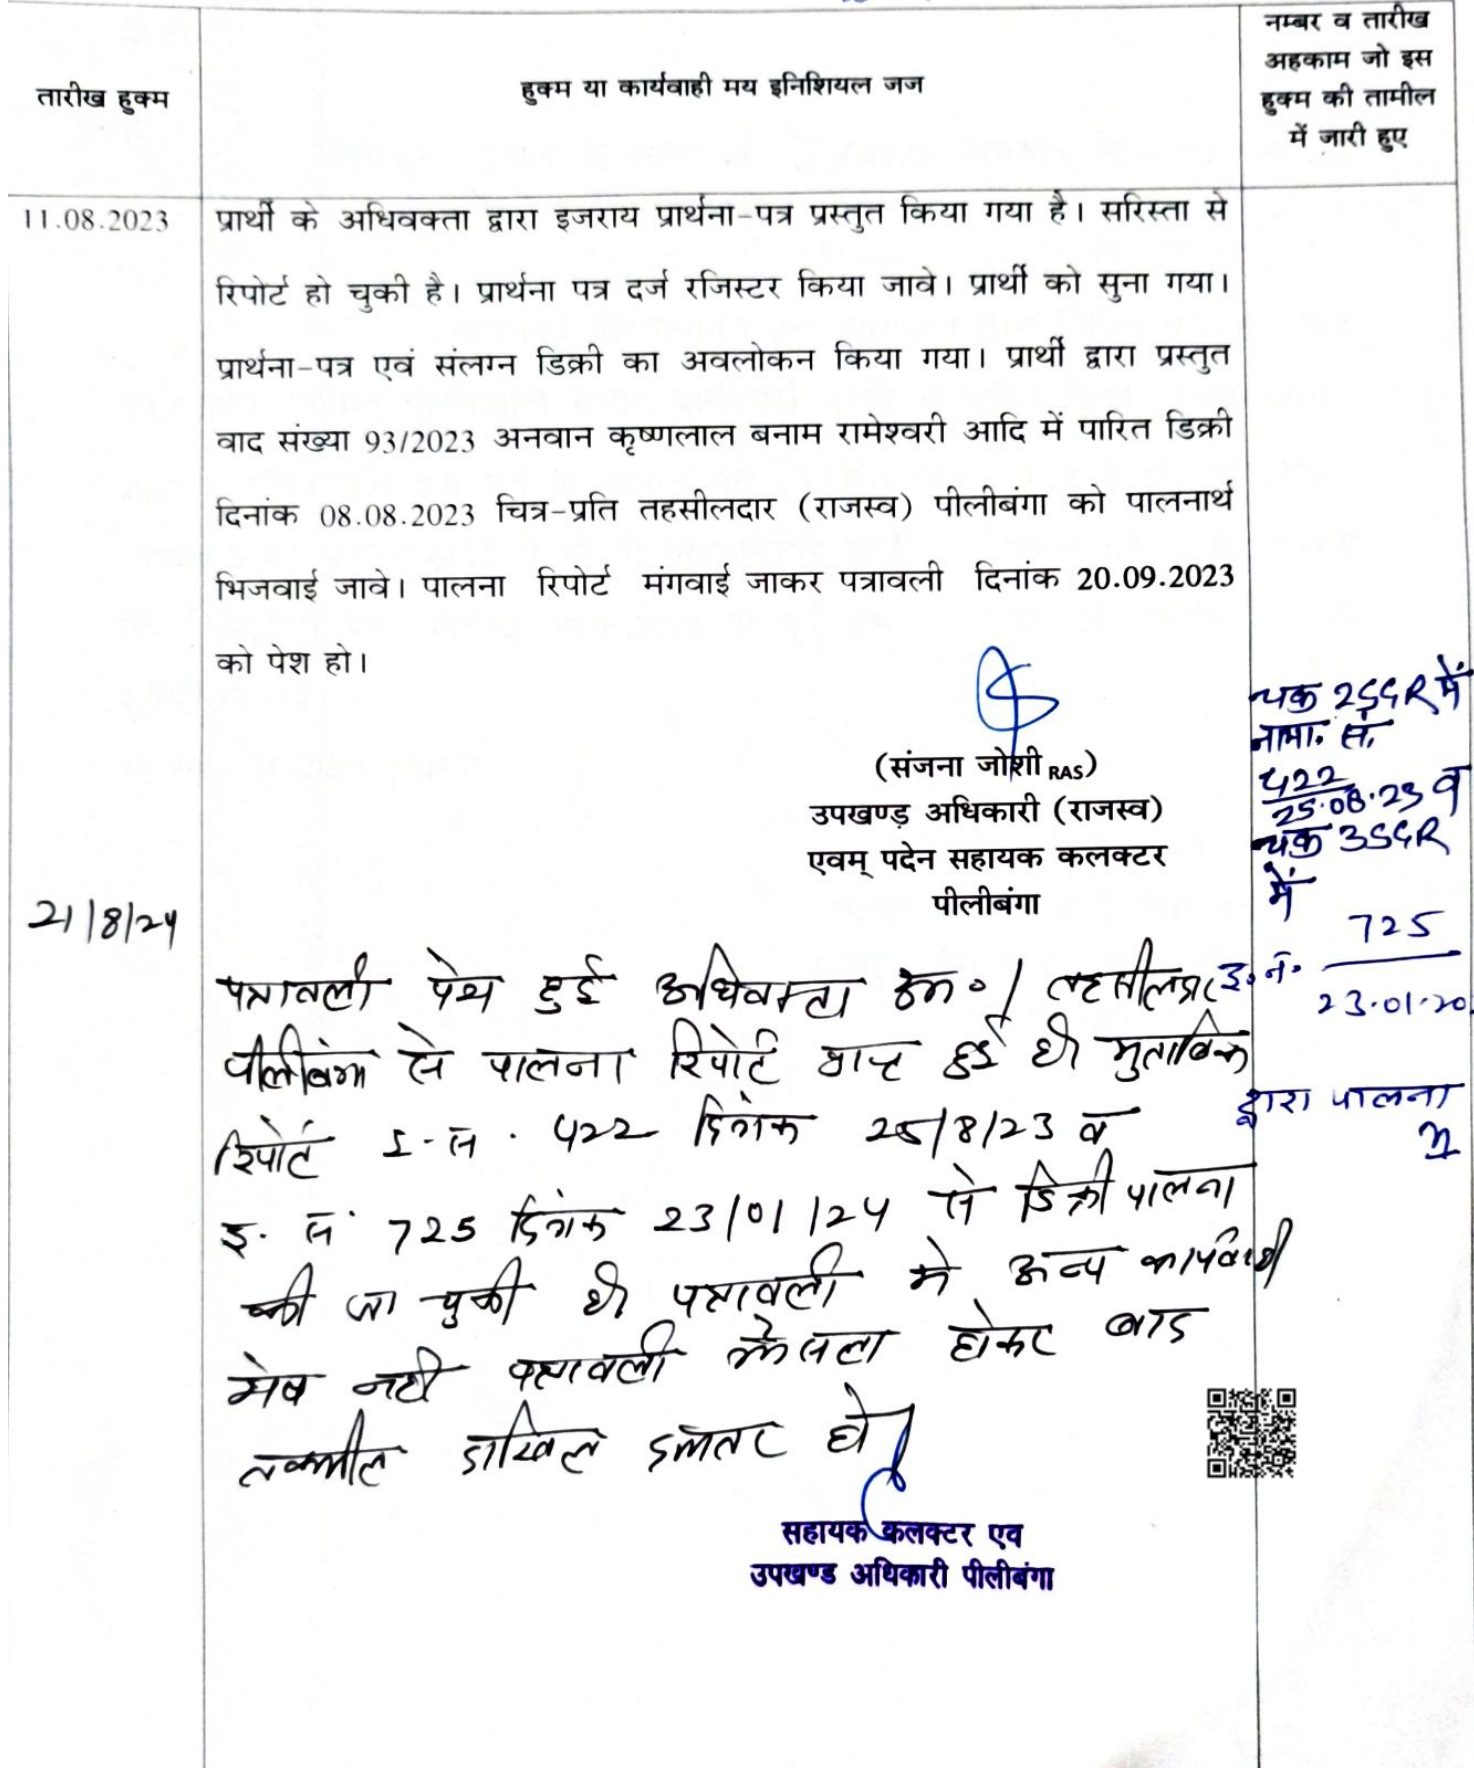 तारीख हुक्म
हुक्म या कार्यवाही मय इनिशियल जज
नम्बर व तारीख
अहकाम जो इस
हुक्म की तामील
में जारी हुए
11.08.2023
प्रार्थी के अधिवक्ता द्वारा इजराय प्रार्थना-पत्र प्रस्तुत किया गया है। सरिस्ता से
रिपोर्ट हो चुकी है। प्रार्थना पत्र दर्ज रजिस्टर किया जावे। प्रार्थी को सुना गया।
प्रार्थना-पत्र एवं संलग्न डिक्री का अवलोकन किया गया। प्रार्थी द्वारा प्रस्तुत
वाद संख्या 93/2023 अनवान कृष्णलाल बनाम रामेश्वरी आदि में पारित डिक्री
दिनांक 08.08.2023 चित्र-प्रति तहसीलदार (राजस्व) पीलीबंगा को पालनार्थ
भिजवाई जावे। पालना रिपोर्ट मंगवाई जाकर पत्रावली दिनांक 20.09.2023
को पेश हो।
(संजना जोशी RAS)
उपखण्ड़ अधिकारी (राजस्व)
एवम् पदेन सहायक कलक्टर
पीलीबंगा
चक 2SGR में
नामा. सं.
422
25.08.23 व
चक 3SGR
में
725
इ.नं.
23.01.20
द्वारा पालना
21/8/24
पत्रावली पेश हुई अधिवक्ता उप० / तहसीलदार
पीलीबंगा से पालना रिपोर्ट प्राप्त हुई है। मुताबिक
रिपोर्ट इ. सं. 422 दिनांक 25/8/23 व
इ. सं. 725 दिनांक 23/01/24 से डिक्री पालना
की जा चुकी है। पत्रावली में अन्य कार्यवाही
शेष नहीं पत्रावली फैसला होकर बाद
तकमील दाखिल दफ्तर हो।
सहायक कलक्टर एव
उपखण्ड अधिकारी पीलीबंगा